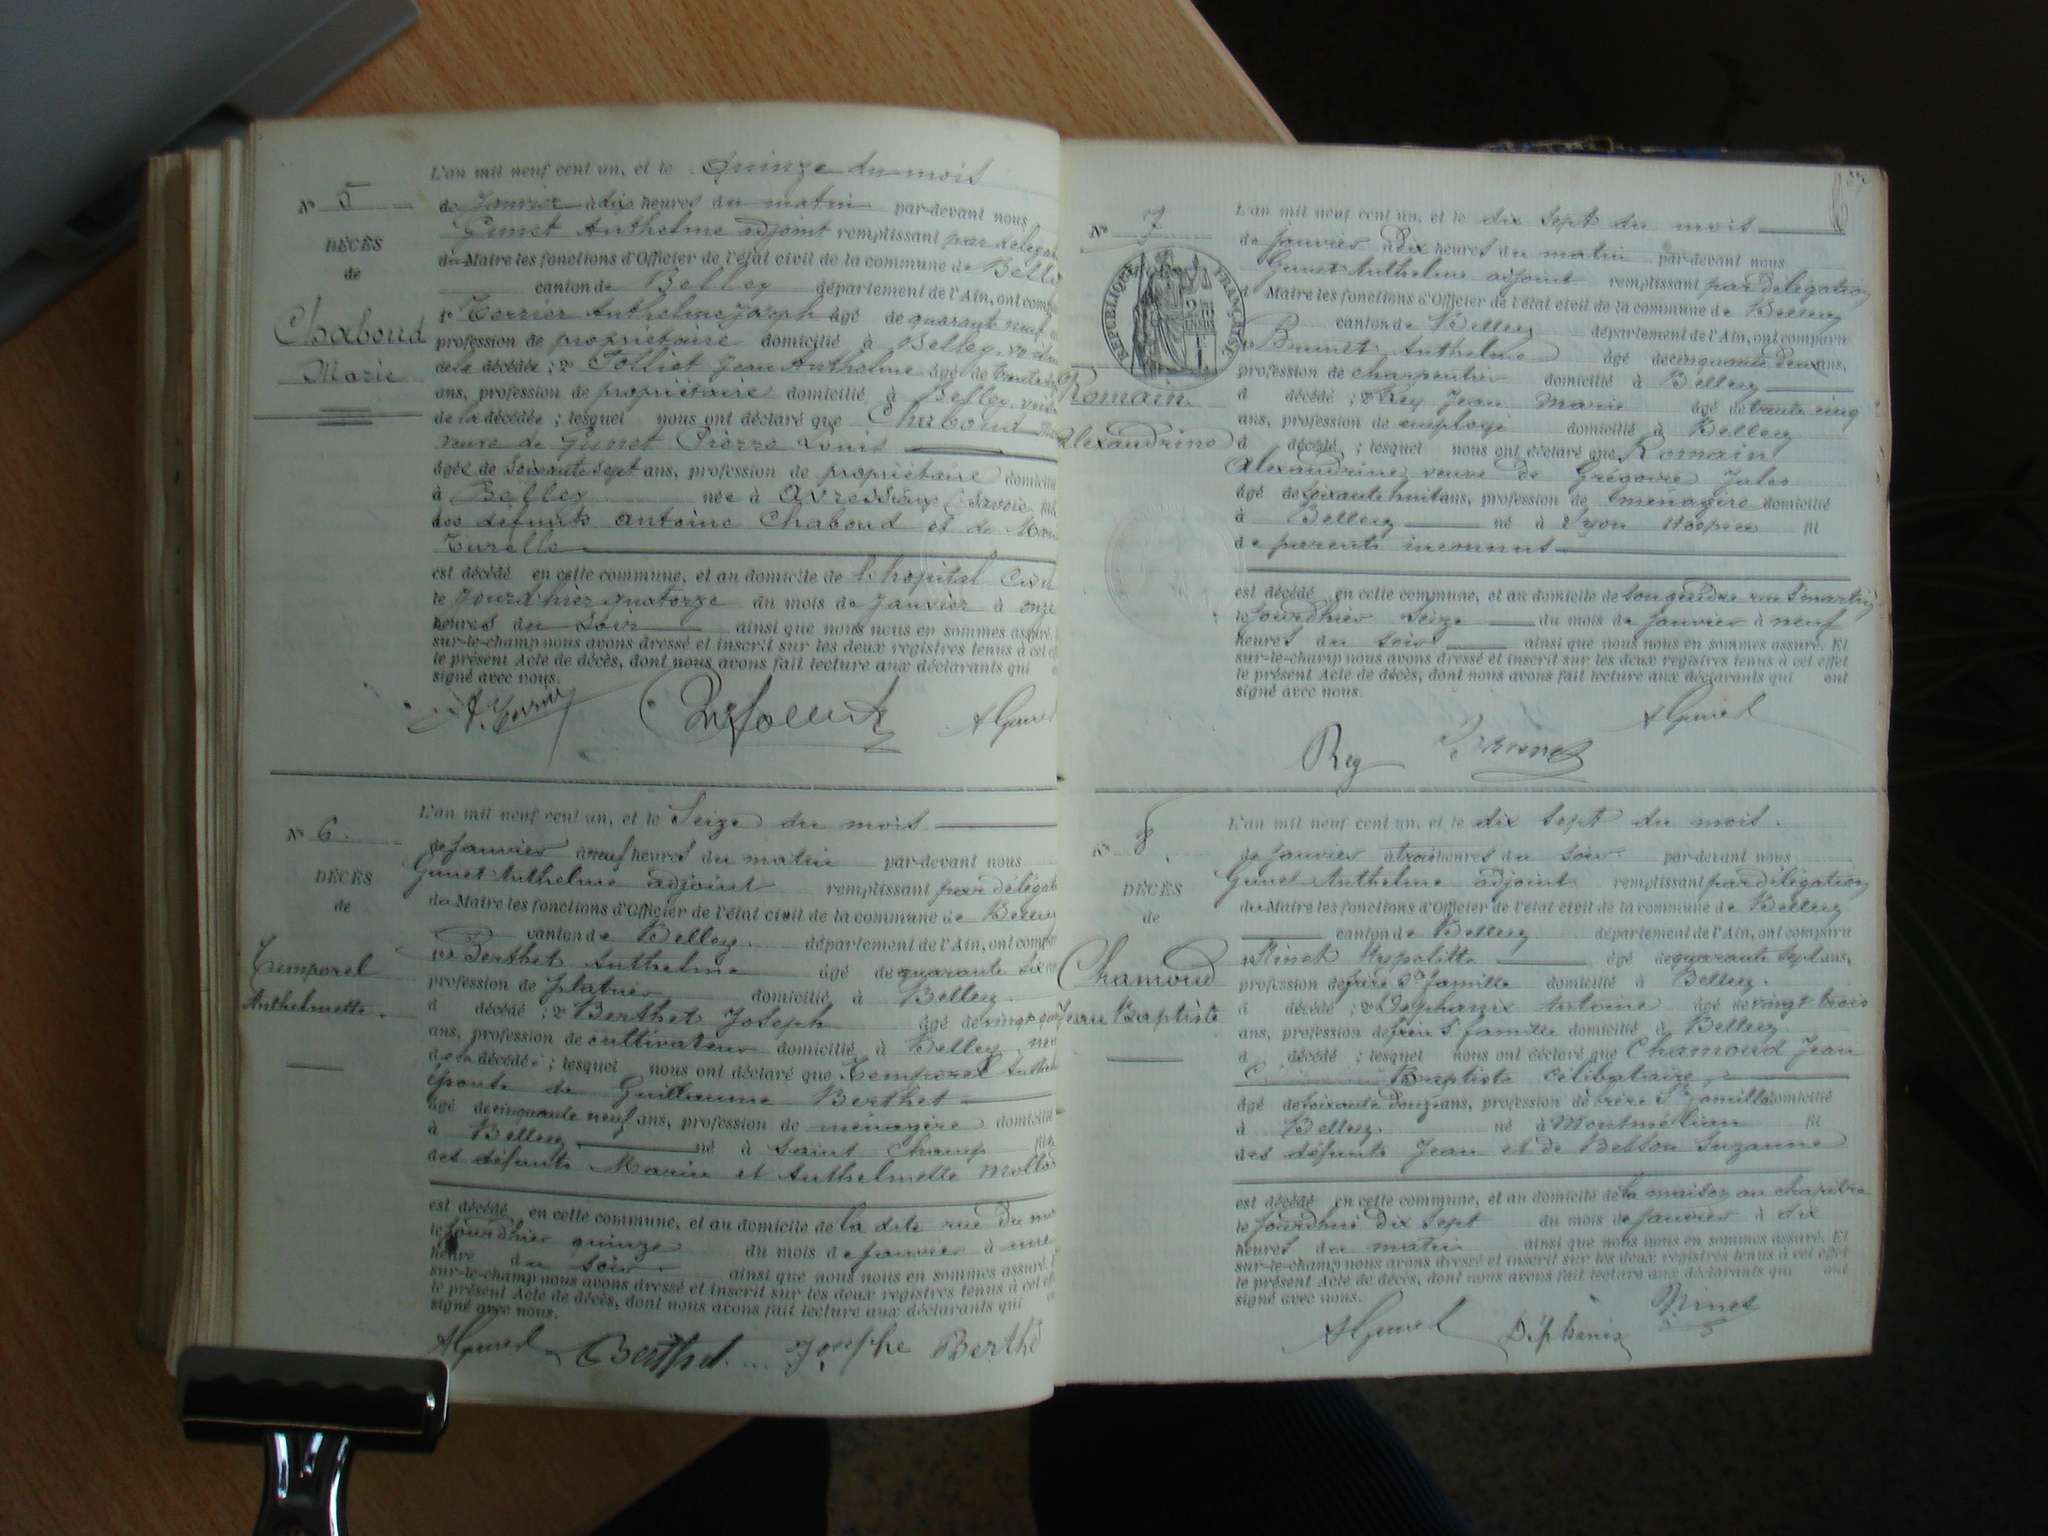 N° 5
DÉCÈS
de
Chaboud
Marie
L'an mil neuf cent un, et le Quinze du mois
de Janvier à dix heures du matin par-devant nous
Gunet Anthelme adjoint remplissant par délégat
du Maire les fonctions d'Officier de l'état civil de la commune de Belle
canton de Belley département de l'Ain, ont comp
1° Terrier Anthelme Joseph âgé de quarante neuf
profession de propriétaire domicilié à Belley, voi
de la décédée ; 2° Folliet Jean Anthelme âgé de trente
ans, profession de propriétaire domicilié à Belley, voi
de la décédée ; lesquel nous ont déclaré que Chaboud
veuve de Gunet Pierre Louis
âgée de Soixante sept ans, profession de propriétaire domicilié
à Belley née à Avressieux (Savoie) fil
des défunts Antoine Chaboud et de
Turello
est décédé en cette commune, et au domicile de l'hôpital
le Jourd'hier quatorze du mois de Janvier à onze
heures du soir ainsi que nous nous en sommes assuré.
sur-le-champ nous avons dressé et inscrit sur les deux registres tenus à cet ef
le présent Acte de décès, dont nous avons fait lecture aux déclarants qui
signé avec nous.
A Gunet
N° 6.
DÉCÈS
de
Temporel
Anthelmette.
L'an mil neuf cent un, et le Seize du mois
de Janvier à neuf heures du matin par-devant nous
Gunet Anthelme adjoint remplissant par délégat
du Maire les fonctions d'Officier de l'état civil de la commune de Belley
canton de Belley. département de l'Ain, ont compar
1° Berthet Anthelme âgé de quarante six
profession de platrier domicilié à Belley.
à décédé ; 2° Berthet Joseph âgé de vingt
ans, profession de cultivateur domicilié à Belley
de la décédée ; lesquel nous ont déclaré que Temporel Anthel
épouse de Guillaume Berthet
âgé de cinquante neuf ans, profession de ménagère domicilié
à Belley né à Saint Champ fil
des défunts Marin et Anthelmette Molla
est décédé en cette commune, et au domicile de la dite rue du
le Jourd'hier quinze du mois de Janvier à une
heure du soir. ainsi que nous nous en sommes assuré.
sur-le-champ nous avons dressé et inscrit sur les deux registres tenus à cet
le présent Acte de décès, dont nous avons fait lecture aux déclarants qui
signé avec nous.
A Gunet Berthet Josephe Berthe
N° 7
RÉPUBLIQUE FRANÇAISE
Romain
Alexandrine
L'an mil neuf cent un, et le dix sept du mois
de Janvier à dix heures du matin par-devant nous
Gunet Anthelme adjoint remplissant par délégation
d Maire les fonctions d'Officier de l'état civil de la commune de Belley
canton de Belley département de l'Ain, ont comparu
1° Brunet Anthelme âgé de cinquante deux ans,
profession de charpentier domicilié à Belley
d décédé ; 2° Rey Jean Marie âgé de trente cinq
ans, profession de employé domicilié à Belley
d décédé ; lesquel nous ont déclaré que Romain
Alexandrine veuve de Grégoire Jules
âgé de soixante huit ans, profession de ménagère domicilié
à Belley né à Lyon Hospice fil
de parents inconnus
est décédé en cette commune, et au domicile de son gendre rue St martin
le Jourdhier Seize du mois de Janvier à neuf
heures du soir ainsi que nous nous en sommes assuré. Et
sur-le-champ nous avons dressé et inscrit sur les deux registres tenus à cet effet
le présent Acte de décès, dont nous avons fait lecture aux déclarants qui ont
signé avec nous.
A Gunet
Rey Brunet
N° 8
DÉCÈS
de
Chamoud
Jean Baptiste
L'an mil neuf cent un, et le dix sept du mois.
de Janvier à trois heures du soir par-devant nous
Gunet Anthelme adjoint remplissant par délégation
du Maire les fonctions d'Officier de l'état civil de la commune de Belley
canton de Belley département de l'Ain, ont comparu
1° Ninet Hypolitte âgé de quarante sept ans,
profession de frère Ste famille domicilié à Belley.
d décédé ; 2° Déphanix Antoine âgé de vingt trois
ans, profession de frère S. famille domicilié à Belley
d décédé ; lesquel nous ont déclaré que Chamoud Jean
Baptiste célibataire
âgé de soixante douze ans, profession de frère Ste famille domicilié
à Belley. né à Montmélian fil
des défunts Jean et de Besson Suzanne
est décédé en cette commune, et au domicile de la maison au chapitre
le Jourdhui dix sept du mois de Janvier à six
heures du matin ainsi que nous nous en sommes assuré. Et
sur-le-champ nous avons dressé et inscrit sur les deux registres tenus à cet effet
le présent Acte de décès, dont nous avons fait lecture aux déclarants qui ont
signé avec nous.
A Gunet Déphanix Ninet